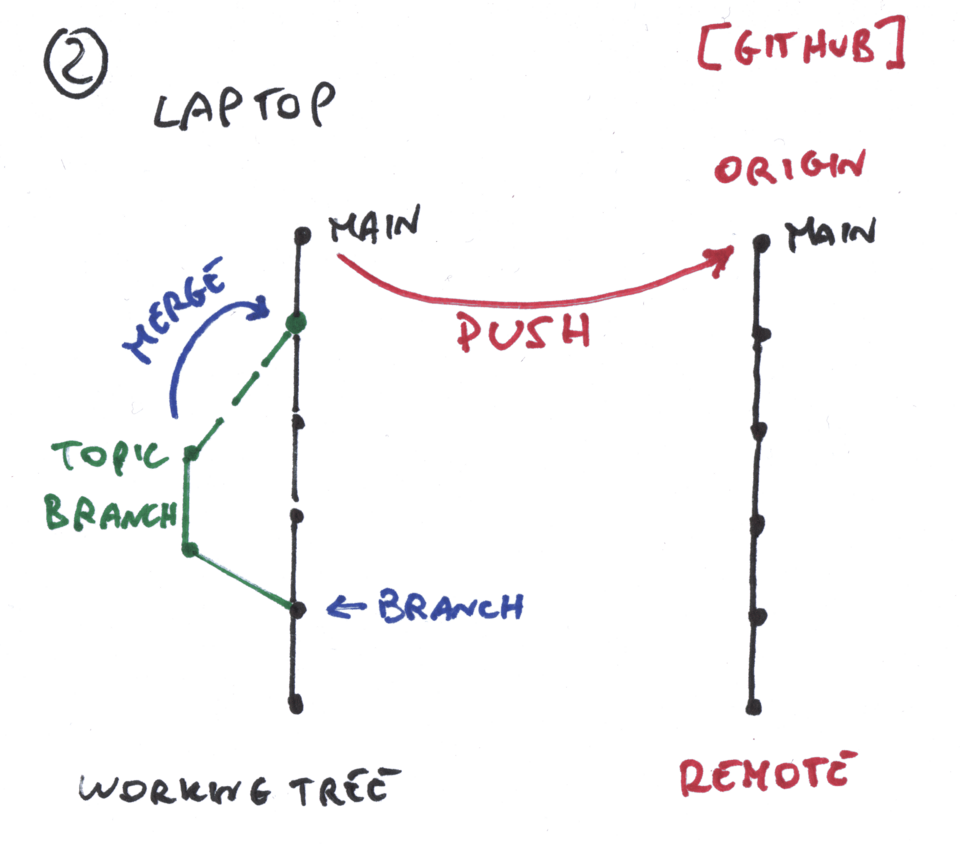 2
[GITHUB]
LAPTOP
ORIGIN
MAIN
MAIN
MERGE
PUSH
TOPIC
BRANCH
← BRANCH
WORKING TREE
REMOTE